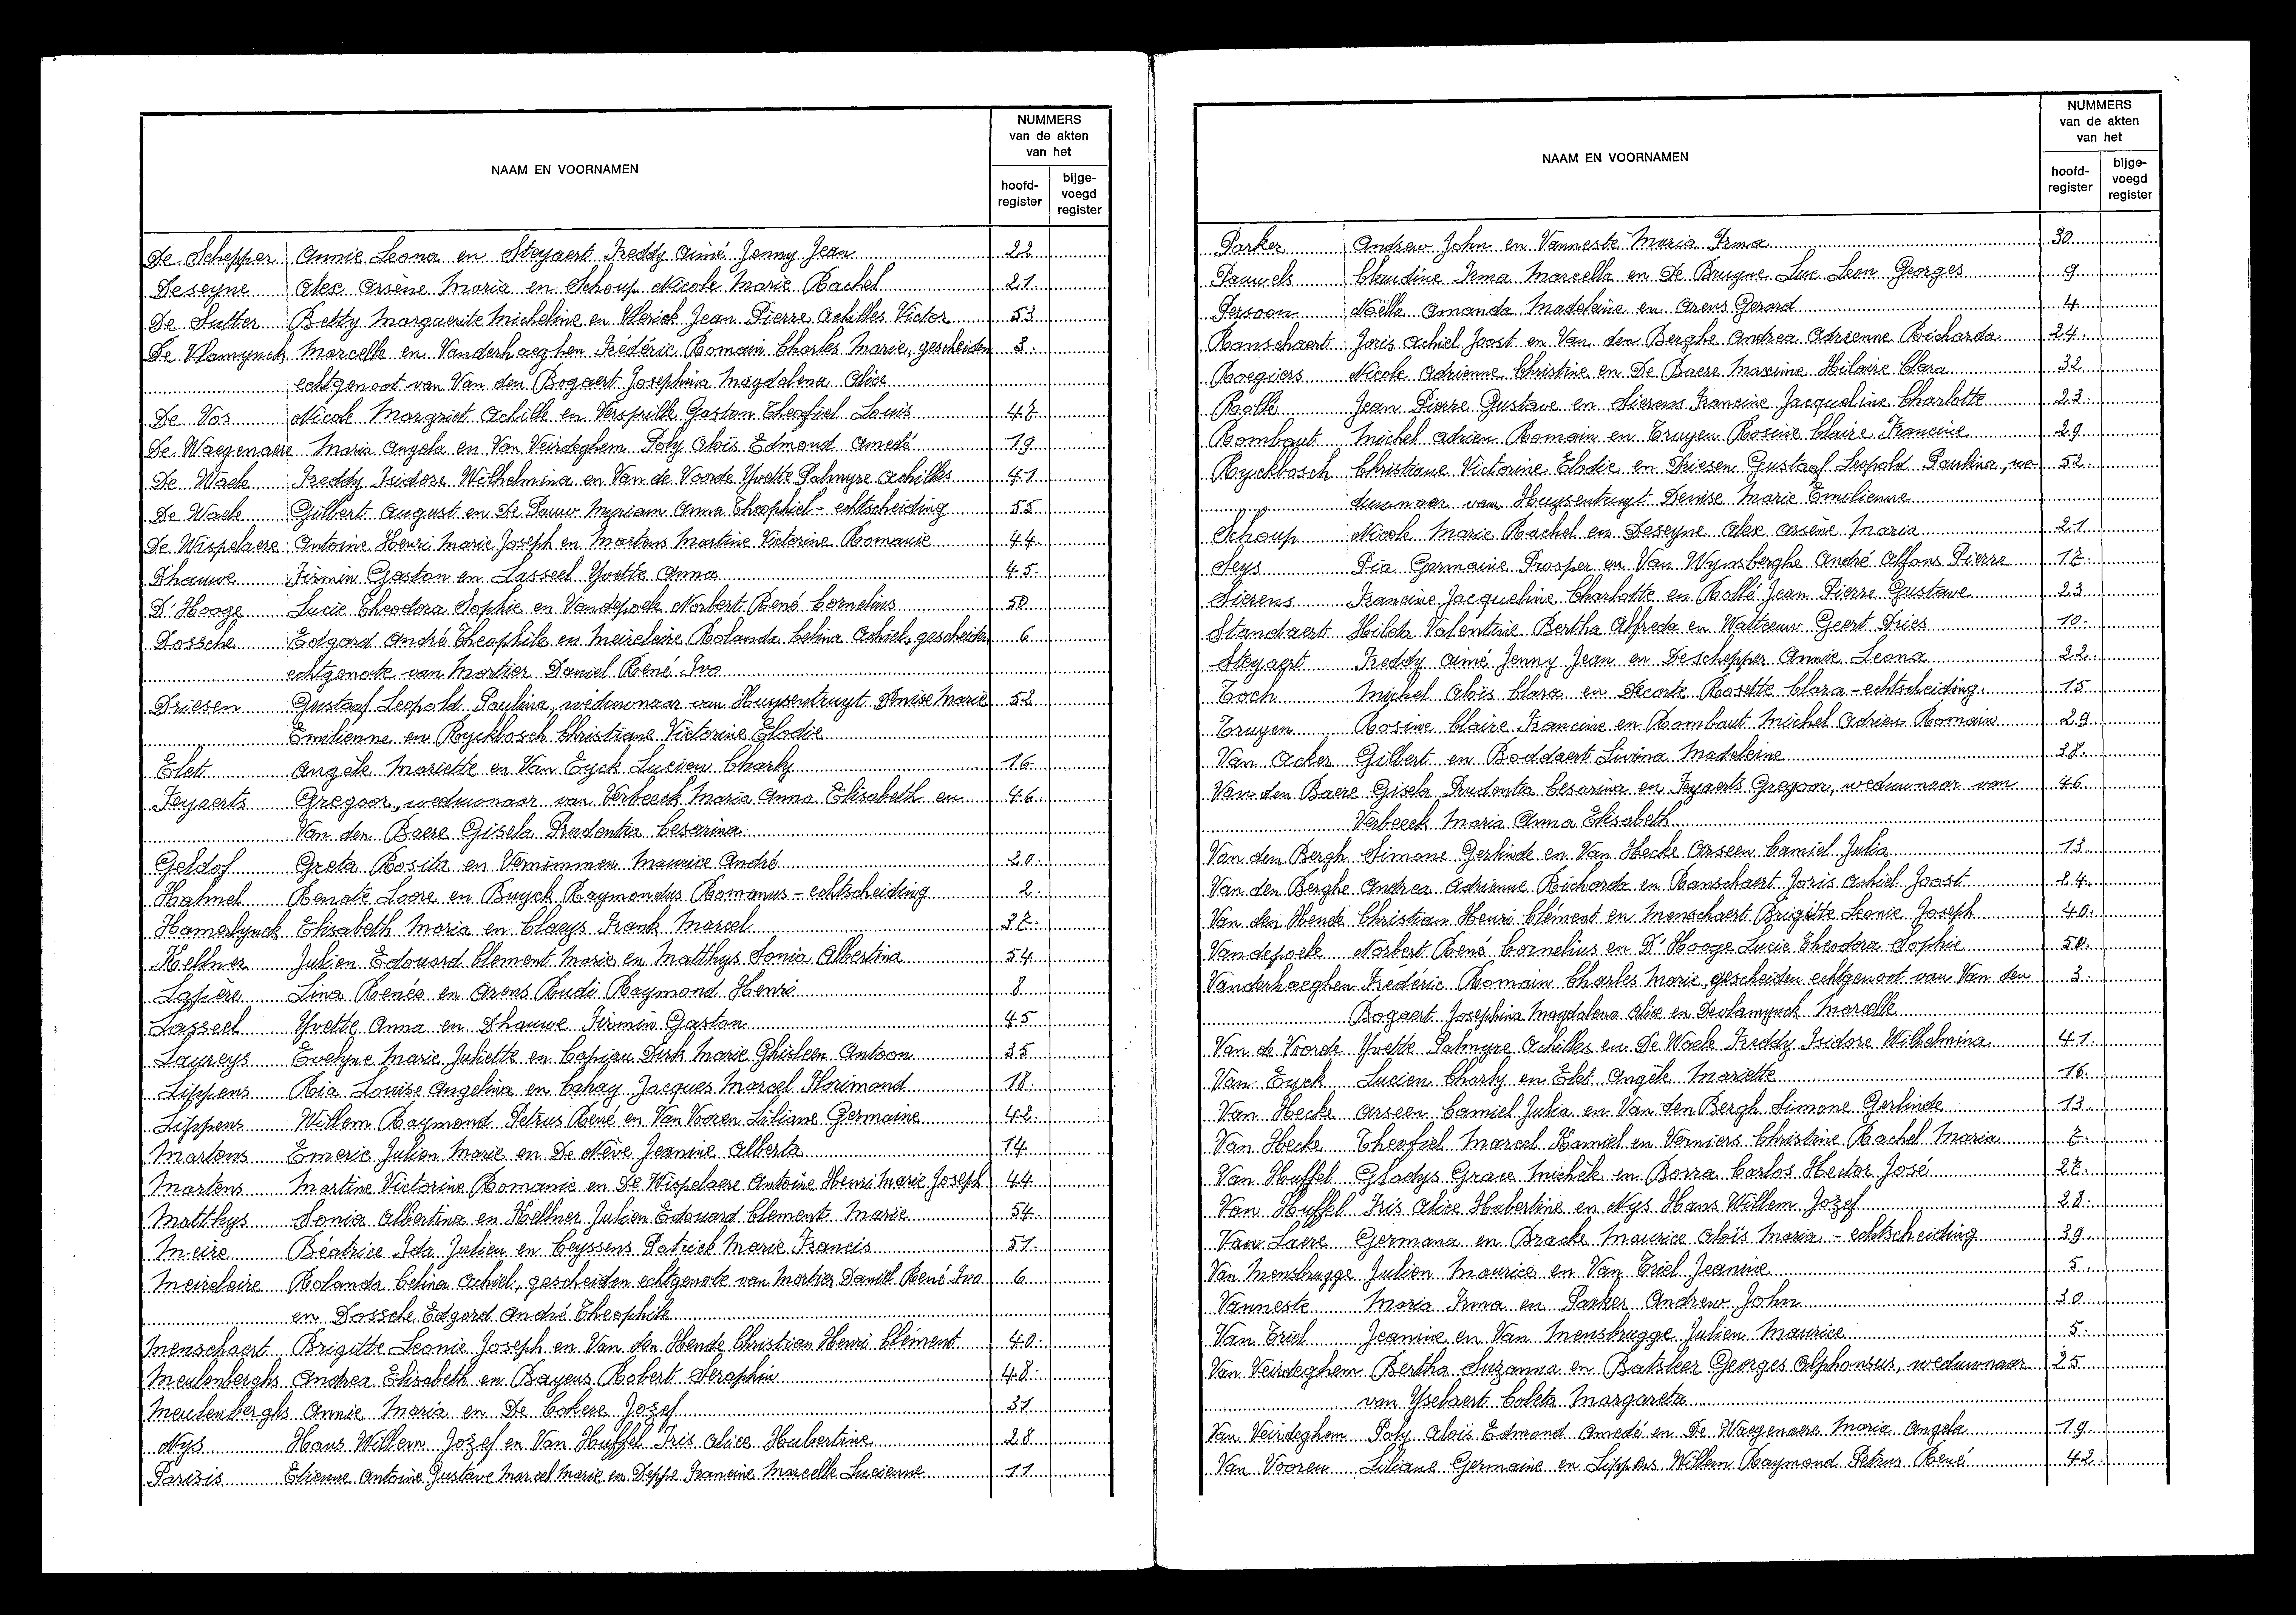 NAAM EN VOORNAMEN
NUMMERS
van de akten
van het
hoofd-
register
bijge-
voegd
register
De Schepper Annie Leona en Steyaert Freddy Aimé Jenny Jean 22
Deseyne Alex Arsène Maria en Schoup Nicole Marie Rachel 21
De Sutter Betty Marguerite Micheline en Vlerick Jean Pierre Achilles Victor 53
De Vlamynck Marcelle en Vanderhaeghen Frédéric Romain Charles Marie, gescheiden 3.
echtgenoot van Van den Bogaert Josephina Magdalena Alice
De Vos Nicole Margriet Achille en Verspille Gaston Theofiel Louis 47
De Waegenaere Maria Angela en Van Veirdeghem Poly Aloïs Edmond Amedé 19
De Waele Freddy Isidore Wilhelmina en Van de Voorde Yvette Palmyre Achilles 41
De Waele Gilbert August en De Pauw Myriam Anna Theophiel - echtscheiding 55
De Wispelaere Antoine Henri Marie Joseph en Martens Martine Victorine Romanie 44
Dhauwe Firmin Gaston en Lasseel Yvette Anna 45.
D'Hooge Lucie Theodora Sophie en Vandepoele Norbert René Cornelius 50
Dossche Edgard André Theophile en Meireleire Rolanda Celina Achiel, gescheiden 6
echtgenote van Mortier Daniel René Ivo
Driesen Gustaaf Leopold Paulina, weduwnaar van Huysentruyt Denise Marie 52
Emilienne en Ryckbosch Christiane Victorine Elodie
Elet Angèle Mariette en Van Eyck Lucien Charly 16
Feyaerts Gregoor, weduwnaar van Verbeeck Maria Anna Elisabeth en 46.
Van den Baere Gisela Prudentia Cesarina
Geldof Greta Rosita en Vernimmen Maurice André 20.
Halmel Renate Loore en Buyck Raymondus Romanus - echtscheiding 2.
Hamerlynck Elisabeth Maria en Claeys Frank Marcel 37.
Kellner Julien Edouard Clement Marie en Matthys Sonia Albertina 54
Lapère Lina Renée en Arens Rudi Raymond Henri 8
Lasseel Yvette Anna en Dhauwe Firmin Gaston 45
Laureys Evelyne Marie Juliette en Capiau Dirk Marie Ghisleen Antoon 35
Lippens Ria Louise Angelina en Cahay Jacques Marcel Florimond 18.
Lippens Willem Raymond Petrus René en Van Vooren Liliane Germaine 42.
Martens Emeric Julien Marie en De Nève Jeannine Alberta 14
Martens Martine Victorine Romanie en De Wispelaere Antoine Henri Marie Joseph 44
Matthys Sonia Albertina en Kellner Julien Edouard Clement Marie 54
Meire Béatrice Ida Julien en Ceyssens Patrick Marie Francis 51.
Meirelaire Rolanda Celina Achiel, gescheiden echtgenote van Mortier Daniel René Ivo 6
en Dossche Edgard André Theophile
Menschaert Brigitte Leonie Joseph en Van den Hende Christian Henri Clément 40.
Meulenberghs Andrea Elisabeth en Bayens Robert Seraphin 48.
Meulenberghs Annie Maria en De Cokere Jozef 31
Nys Hans Willem Jozef en Van Huffel Iris Alice Hubertine 28
Parizis Etienne Antoine Gustave Marcel Marie en Deppe Francine Marcelle Lucienne 11
NAAM EN VOORNAMEN
NUMMERS
van de akten
van het
hoofd-
register
bijge-
voegd
register
Parker Andrew John en Vanneste Maria Irma 30
Pauwels Claudine Irma Marcella en De Bruyne Luc Leon Georges 9
Persoon Noëlla Amanda Madeleine en Arens Gerard 4
Ranschaert Joris Achiel Joost en Van den Berghe Andrea Adrienne Richarda 24.
Roegiers Nicole Adrienne Christine en De Baere Maxime Hilaire Clara 32
Rollé Jean Pierre Gustave en Sierens Francine Jacqueline Charlotte 23.
Rombaut Michel Adrien Romain en Truyen Rosine Claire Francine 29.
Ryckbosch Christiane Victorine Elodie en Driesen Gustaaf Leopold Paulina, we- 52.
duwnaar van Huysentruyt Denise Marie Emilienne
Schoup Nicole Marie Rachel en Deseyne Alex Arsène Maria 21
Seys Pia Germaine Prosper en Van Wynsberghe André Alfons Pierre 17.
Sierens Francine Jacqueline Charlotte en Rollé Jean Pierre Gustave 23
Standaert Hilda Valentine Bertha Alfreda en Watteeuw Geert Dries 10.
Steyaert Freddy Aimé Jenny Jean en Deschepper Annie Leona 22.
Toch Michel Aloïs Clara en Decorte Rosette Clara - echtscheiding. 15
Truyen Rosine Claire Francine en Rombaut Michel Adrien Romain 29.
Van Acker Gilbert en Boddaert Livina Madeleine 38.
Van den Baere Gisela Prudentia Cesarina en Feyaerts Gregoor, weduwnaar van 46.
Verbeeck Maria Anna Elisabeth
Van den Bergh Simone Gerlinde en Van Hecke Arseen Camiel Julia 13.
Van den Berghe Andrea Adrienne Richarda en Ranschaert Joris Achiel Joost 24.
Van den Hende Christian Henri Clément en Menschaert Brigitte Leonie Joseph 40.
Vandepoele Norbert René Cornelius en D'Hooge Lucie Theodora Sophie 50.
Vanderhaeghen Frédéric Romain Charles Marie, gescheiden echtgenoot van Van den 3.
Bogaert Josephina Magdalena Alice en Devlamynck Marcelle
Van de Voorde Yvette Palmyre Achilles en De Waele Freddy Isidore Wilhelmina 41.
Van Eyck Lucien Charly en Elet Angèle Mariette 16.
Van Hecke Arseen Camiel Julia en Van den Bergh Simone Gerlinde 13.
Van Hecke Theofiel Marcel Kamiel en Verniers Christine Rachel Maria 7.
Van Huffel Gladys Grace Michèle en Borra Carlos Hector José 27.
Van Huffel Iris Alice Hubertine en Nys Hans Willem Jozef 28.
Van Laere Germana en Bracke Maurice Aloïs Maria - echtscheiding 39.
Van Mensbrugge Julien Maurice en Van Triel Jeanine 5.
Vanneste Maria Irma en Parker Andrew John 30
Van Triel Jeanine en Van Mensbrugge Julien Maurice 5.
Van Veirdeghem Bertha Suzanna en Batsleer Georges Alphonsus, weduwnaar 25
van Yselaert Coleta Margareta
Van Veirdeghem Poly Aloïs Edmond Amedé en De Waegenaere Maria Angela 19.
Van Vooren Liliane Germaine en Lippens Willem Raymond Petrus René 42.